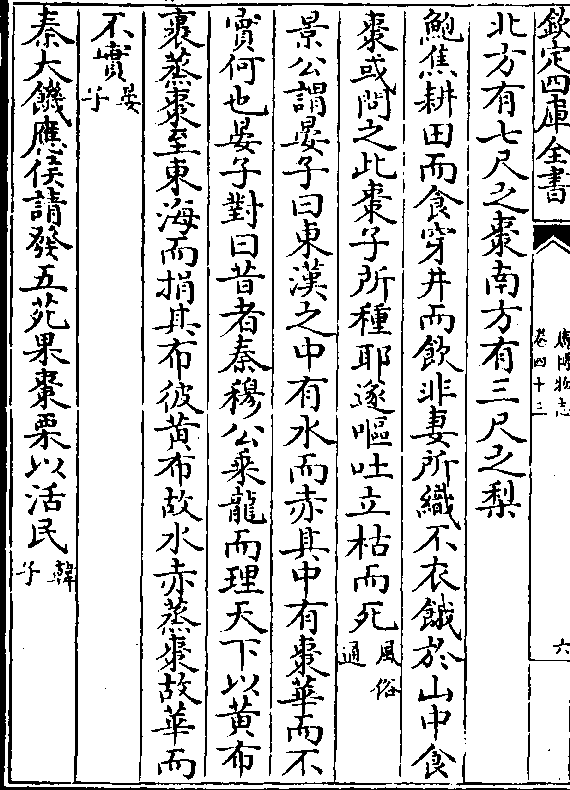 欽定四庫全書
廣博物志
卷四十三
六
北方有七尺之棗南方有三尺之梨
鮑焦耕田而食穿井而飲非妻所織不衣餓於山中食
棗或問之此棗子所種耶遂嘔吐立枯而死風俗通
景公謂晏子曰東漢之中有水而赤其中有棗華而不
實何也晏子對曰昔者秦穆公乘龍而理天下以黄布
裹蒸棗至東海而捐其布彼黄布故水赤蒸棗故華而
不實晏子
秦大饑應侯請發五苑果棗栗以活民韓子